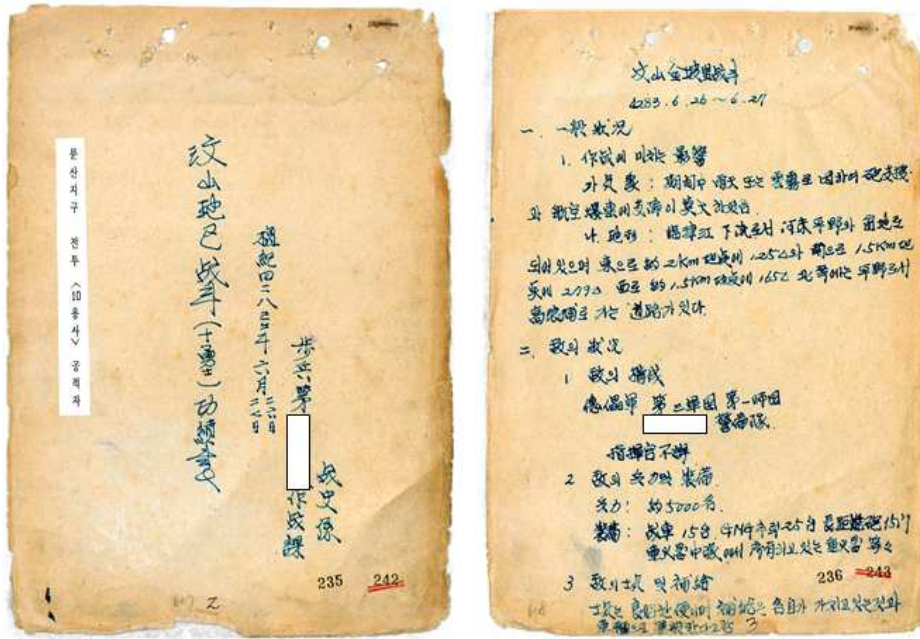 문산지구 전투 <10용사> 공적자
汶山地区战斗(十勇士)功績書
檀紀四二八三年六月二六日
二七日
步兵第
作战課
战史係
235 242
2
汶山金坡里战斗
4283.6.26～6.27
一. 一般狀况
1. 作战에 미치는 影響
가. 氣象 : 期间中 雨天 또는 雲霧로 因하여 砲支援
과 航空爆擊에 支障이 莫大하였음
나. 地形 : 臨津江 下流로서 河床平野와 田地로
되어 있으며 東으로 約 2km 地点에 125고 南으로 1.5km 地
点에 279고 西로 約 1.5km 地点에 165고 北쪽에는 平野로서
高浪浦로 가는 道路가 있다.
二. 敌의 狀况
1 敌의 編成
傀儡軍 第二軍団 第一師団
警備隊
指揮官不詳
2 敌의 兵力과 裝備
兵力: 約5000名.
裝備: 战車 15台 추럭 25台 長距離砲 15门
重火器中隊에 所有하고 있는 重火器 等々
3 敌의 士氣 및 補給
士氣는 良好한 便이며 補給은 各自가 가지고 있는것과
236 243
3